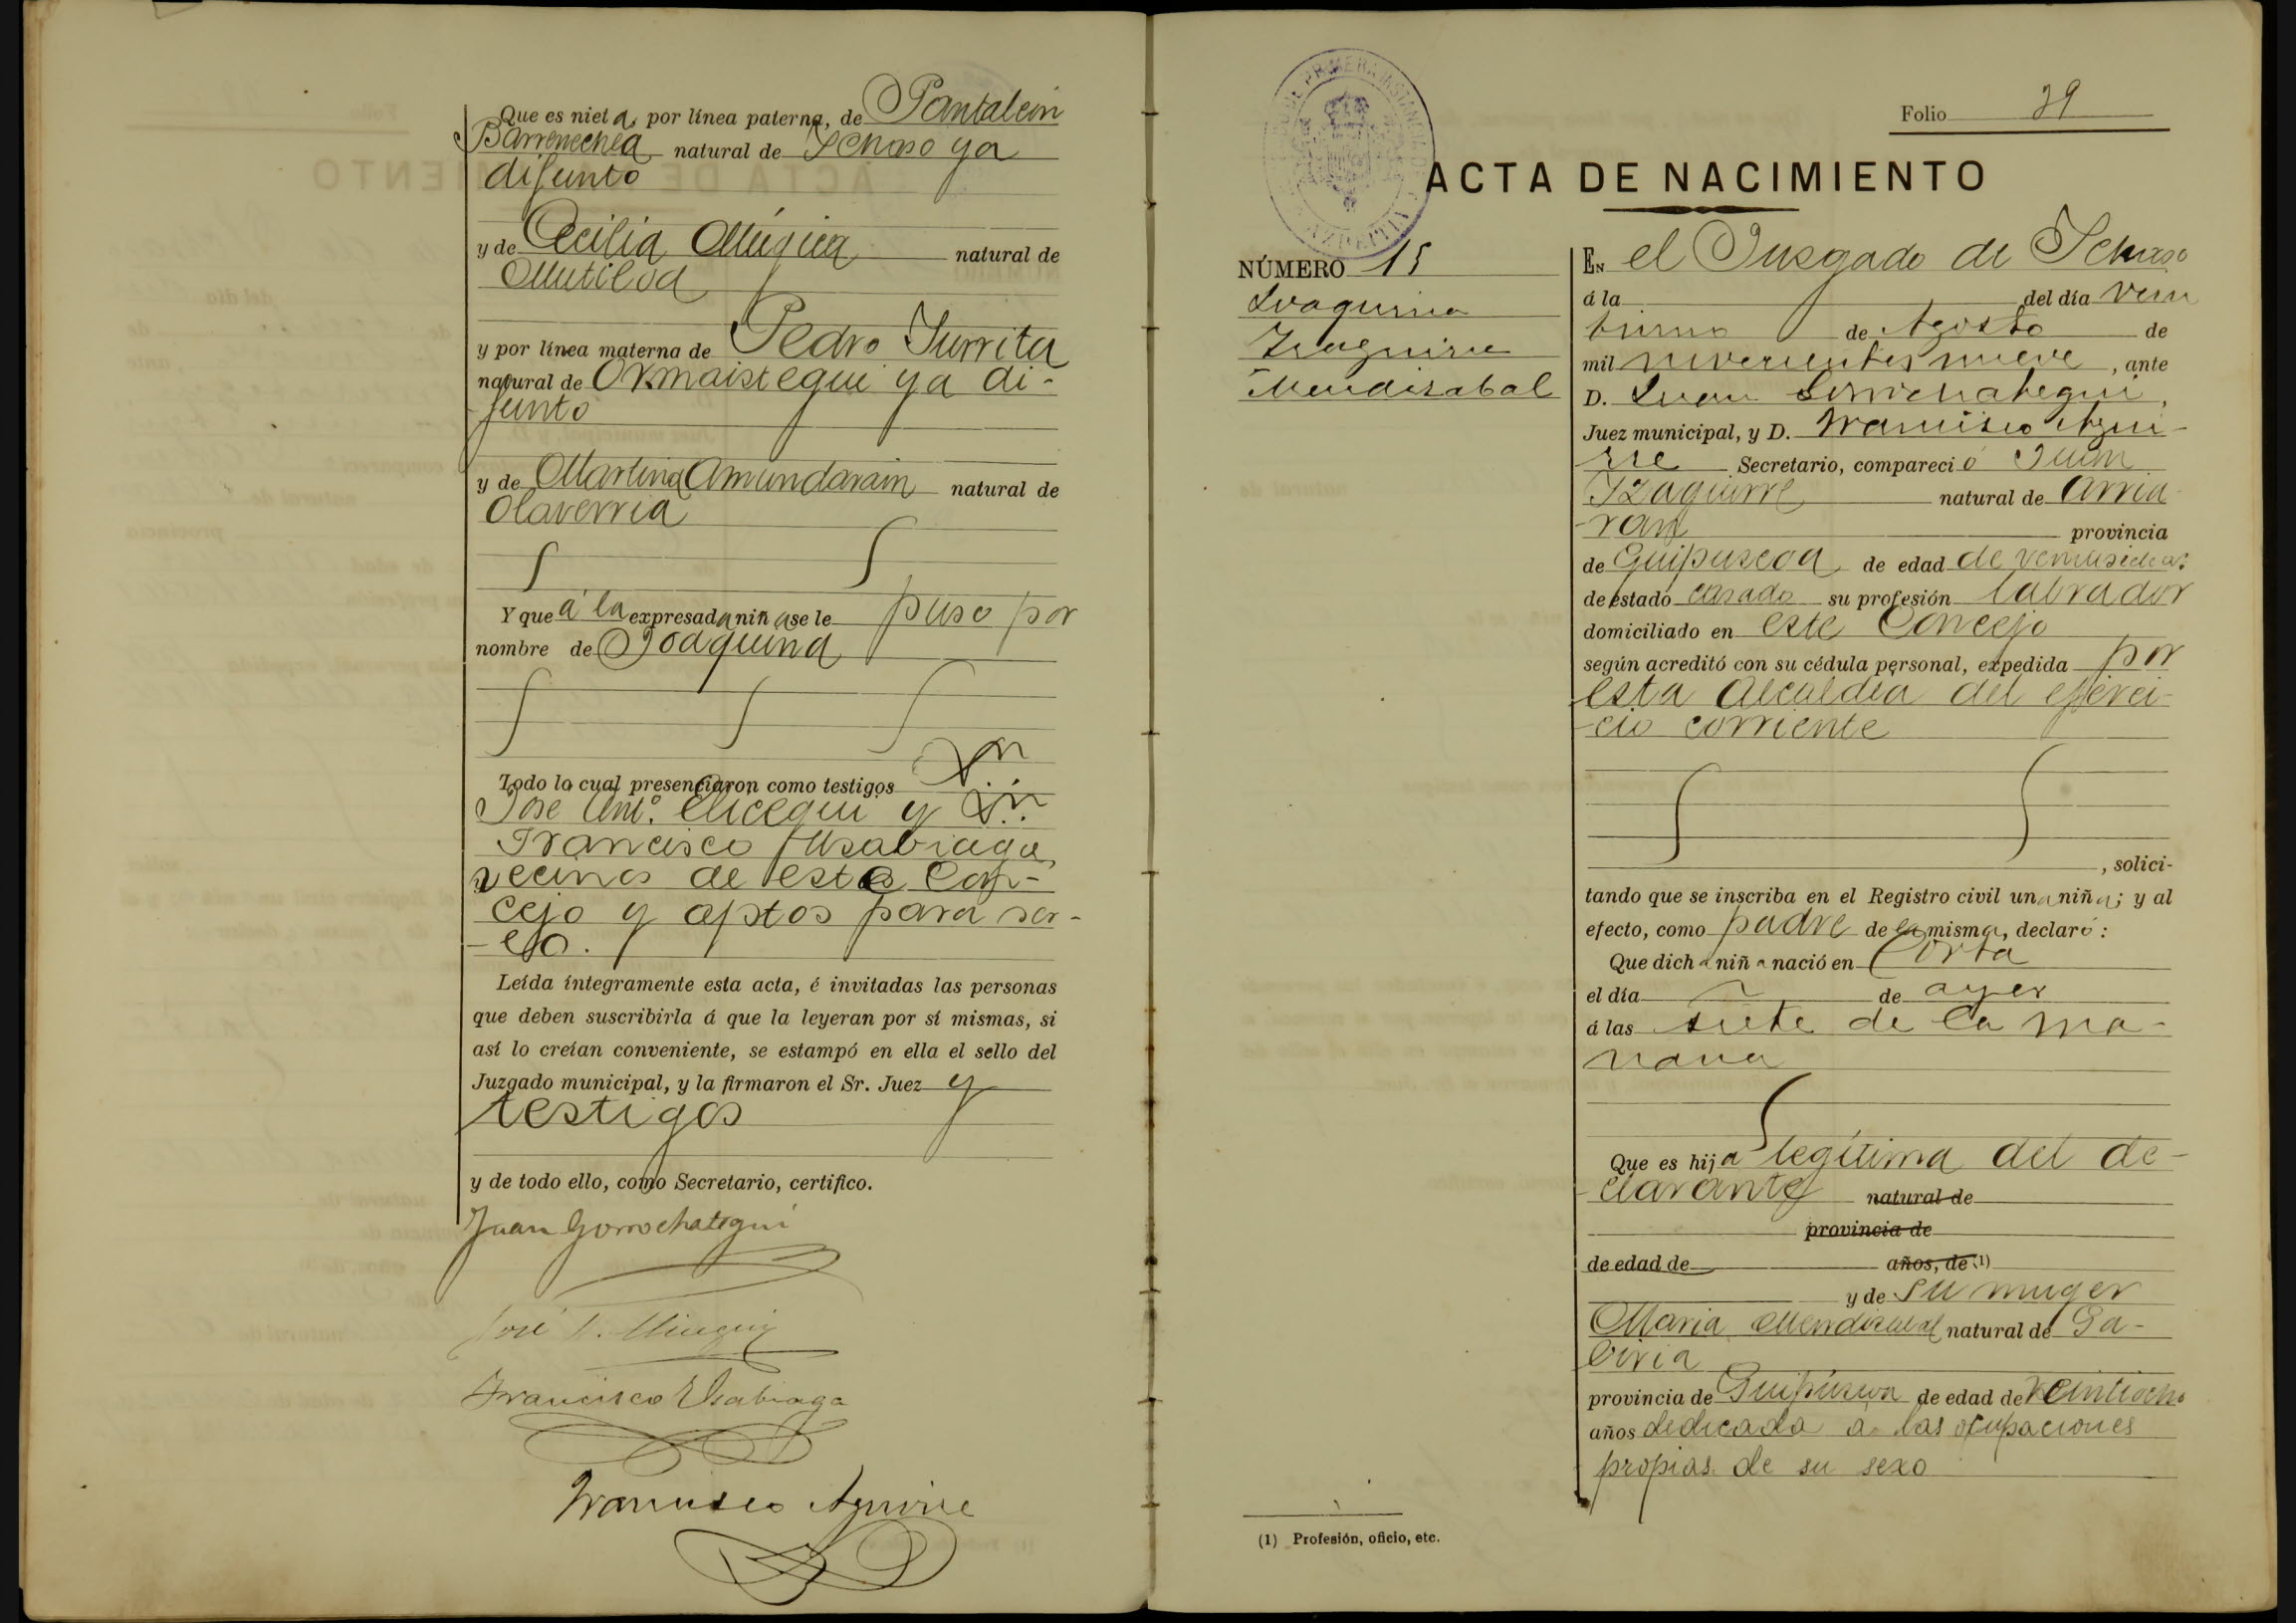 Que es niet a, por línea paterna, de Pantaleón
Barrenechea natural de Ichaso ya
difunto
y de Cecilia Múgica natural de
Mutiloa
y por línea materna de Pedro Iurrita
natural de Ormaistegui ya di-
funto
y de Martina Amundarain natural de
Olaverria
Y que á la expresada niña se le puso por
nombre de Joaquina
Todo lo cual presenciaron como testigos Dn
José Ant.º y Dn.
Francisco Usabiaga
vecinos de este Con-
cejo y aptos para ser-
-lo.
Leída íntegramente esta acta, é invitadas las personas
que deben suscribirla á que la leyeran por sí mismas, si
así lo creían conveniente, se estampó en ella el sello del
Juzgado municipal, y la firmaron el Sr. Juez y
testigos
y de todo ello, como Secretario, certifico.
Juan Gorrochategui
José
Francisco Usabiaga
Francisco Aguirre
Folio 29
ACTA DE NACIMIENTO
NÚMERO 15
Joaquina
Izaguirre
Mendizabal
EN el Juzgado de Ichaso
á la del día vein
tiuno de Agosto de
mil novecientos nueve, ante
D. Juan Gorrochategui,
Juez municipal, y D. Francisco Agui-
rre Secretario, compareció Juan
Izaguirre natural de Arria
-ran provincia
de Guipuscoa de edad de
de estado casado su profesión labrador
domiciliado en este Concejo
según acreditó con su cédula personal, expedida por
esta Alcaldía del ejerci-
-cio corriente
, solici-
tando que se inscriba en el Registro civil una niña; y al
efecto, como padre de la misma, declaró:
Que dicha niña nació en Corta
el día de ayer
á las siete de la ma-
nana
Que es hija legítima del de-
-clarante natural de
provincia de
de edad de años, de (1)
y de su muger
Maria Mendizabal natural de Ga-
biria
provincia de Guipúscoa de edad de veintiocho
años dedicada a las ocupaciones
propias de su sexo
(1) Profesión, oficio, etc.